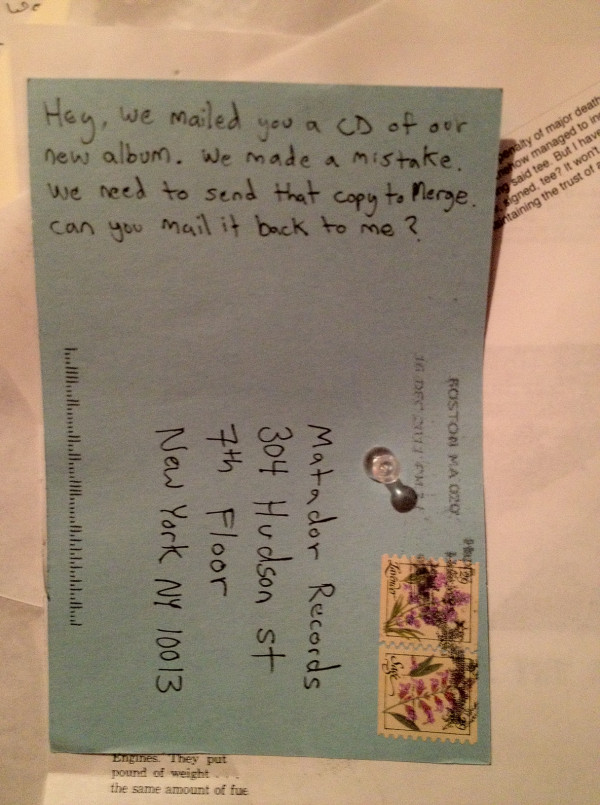 Hey, we mailed you a CD of our
new album. we made a mistake.
we need to send that copy to Merge.
can you mail it back to me?
Matador Records
304 Hudson st
7th Floor
New York NY 10013
BOSTON MA 020
16 DEC 2011 PM
Sage
enalty of major death
ow managed to in
said tee. But I have
signed, tee? It won't
ntaining the trust of a
Engines. They put
pound of weight . . .
the same amount of fue